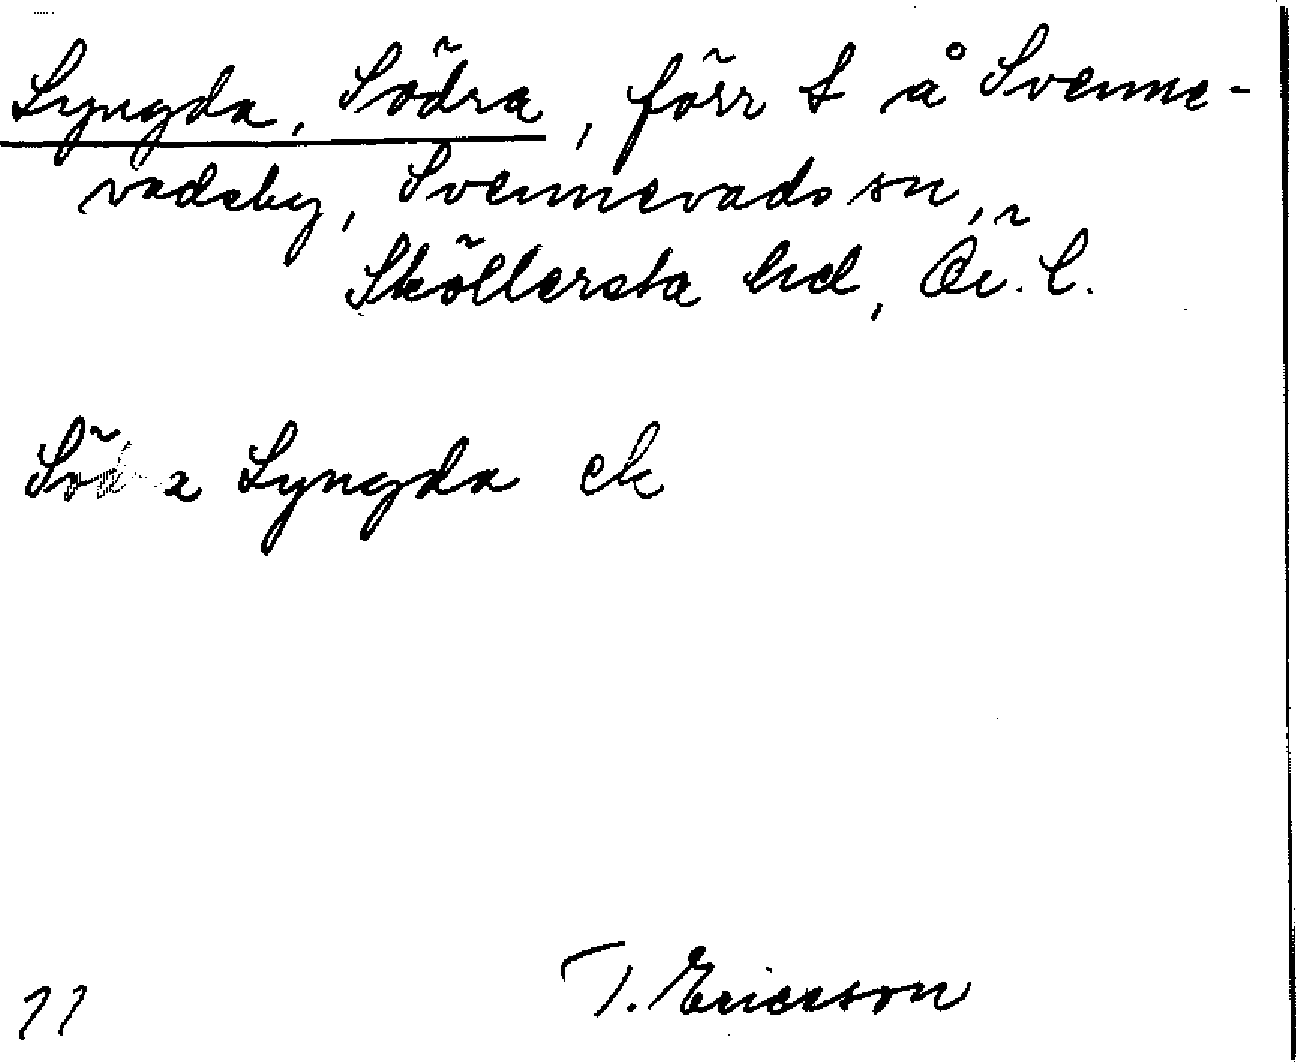 Lyngda, Södra, förr t å Svenne-
vadsby, Svennevads sn,
Sköllersta hd, Ör. l.
Södra Lyngda ek
11 T. Ericsson